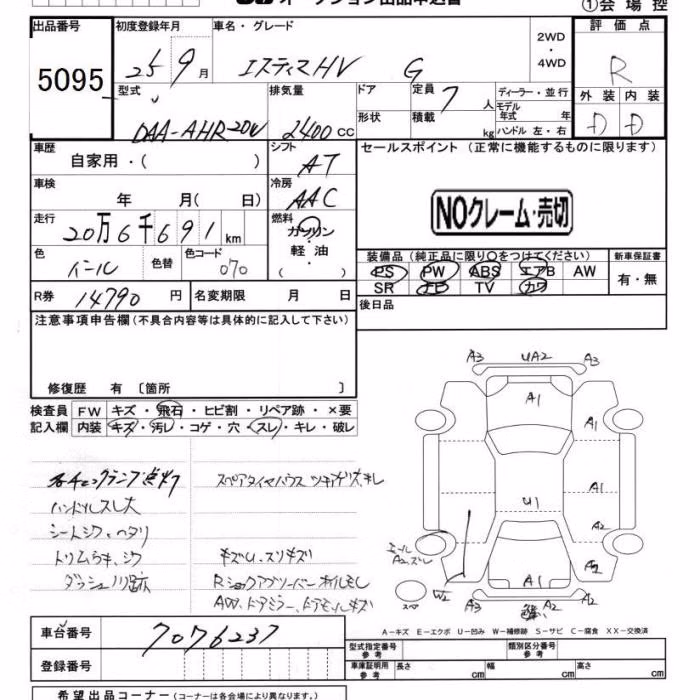 オークション出品申込書
①会場控
出品番号 5095
初度登録年月 25 9月
車名・グレード エスティマHV G
2WD・4WD
評価点 R
型式 DAA-AHR20W
排気量 2400cc
ドア 形状
定員 7人
積載 kg
ディーラー・並行
モデル年式 年
ハンドル 左・右
外装 内装
D D
車歴 自家用・( )
シフト AT
セールスポイント (正常に機能するものに限ります)
車検 年 月( 日)
冷房 AAC
NOクレーム・売切
走行 20万6千691km
燃料 ガソリン・軽油・( )
色 パール 色替
色コード 070
装備品(純正品に限り○をつけてください)
新車保証書
PS PW ABS エアB AW
SR ナビ TV カワ
有・無
R券 14790円
名変期限 月 日
後日品
注意事項申告欄(不具合内容等は具体的に記入して下さい)
修復歴 有〔箇所 〕
検査員記入欄
FW キズ・飛石・ヒビ割・リペア跡・×要
内装 キズ・汚レ・コゲ・穴・スレ・キレ・破レ
ハンドルスレ大
シートシワ、ヘタリ
トリムうキ、シワ
キズU、スリキズ
AW、ドアミラー、ドアモールキズ
A3 UA2 A3
A1 A1
A1
U1
A2
A2
A1
W2
A2 A2
スペア
A-キズ E-エクボ U-凹み W-補修跡 S-サビ C-腐食 XX-交換済
車台番号 7076237
登録番号
型式指定番号 参考
類別区分番号 参考
車庫証明用 参考
長さ cm 幅 cm 高さ cm
希望出品コーナー(コーナーは各会場により異なります。)